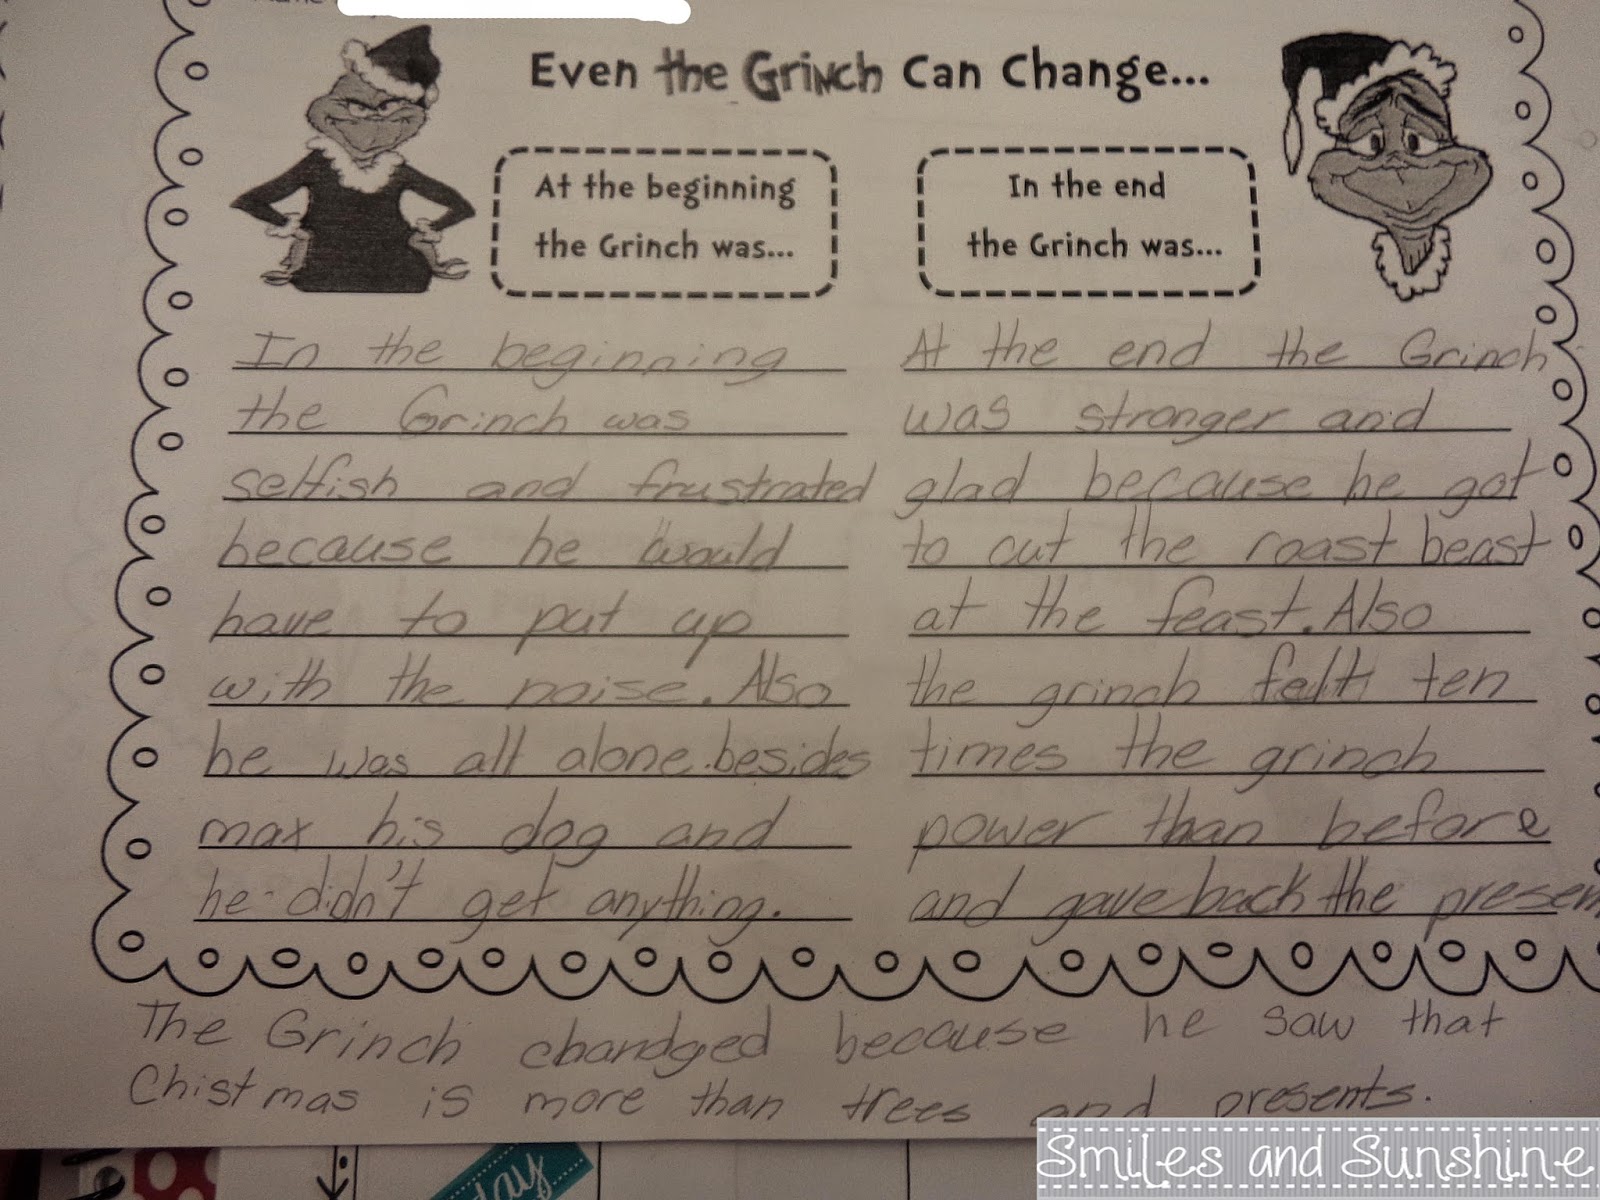 Even the Grinch Can Change...
At the beginning
the Grinch was...
In the beginning
the Grinch was
selfish and frustrated
because he would
have to put up
with the noise. Also
he was all alone.besides
max his dog and
he didn't get anything.
In the end
the Grinch was...
At the end the Grinch
was stronger and
glad because he got
to cut the roast beast
at the feast. Also
the grinch felt ten
times the grinch
power than before
and gave back the presen
The Grinch chandged because he saw that
Chistmas is more than trees and presents.
Smiles and Sunshine